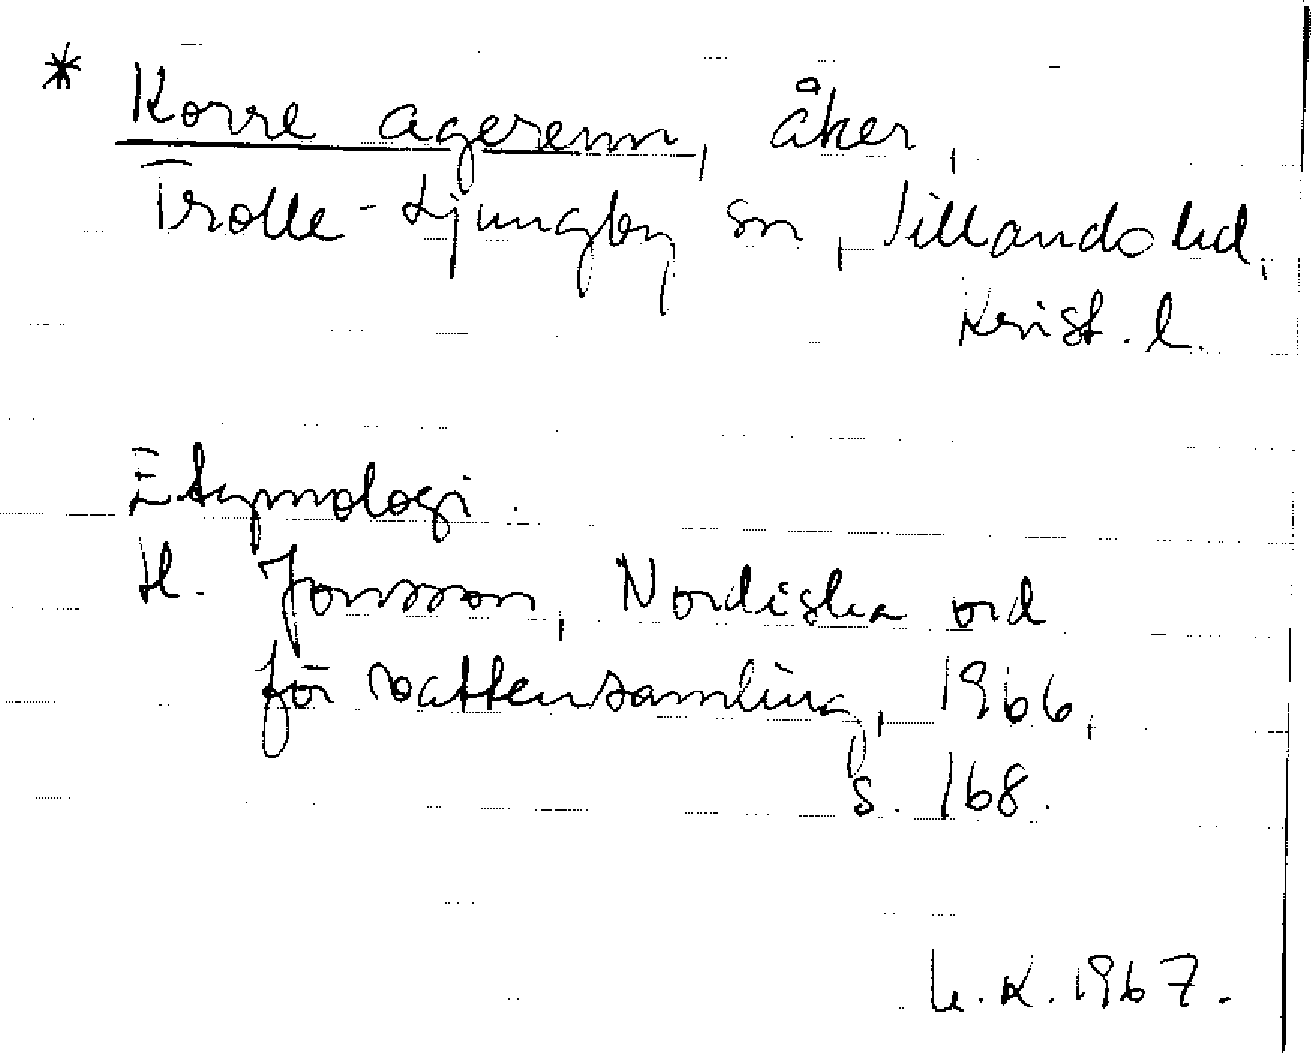 * Korre agerenn, åker,
Trolle-Ljungby sn, Villands hd,
Krist. l.
Etymologi.
H. Jonsson, Nordiska ord
för vattensamling, 1966,
s. 168.
K. 1967.